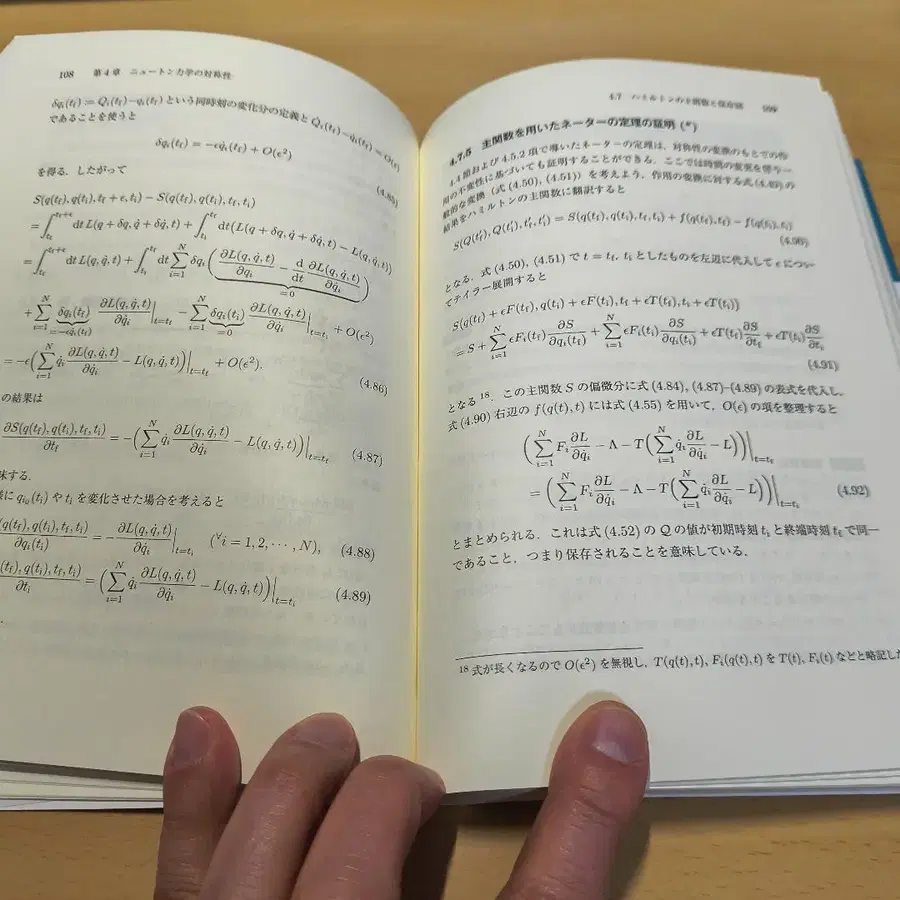 108 第4章 ニュートン力学の対称性
δqᵢ(t_f) := Qᵢ(t_f)−qᵢ(t_f) という同時刻の変化分の定義と Q̇ᵢ(t_f)−q̇ᵢ(t_f) = O(ϵ)
であることを使うと
δqᵢ(t_f) = −ϵq̇ᵢ(t_f) + O(ϵ²) (4.85)
を得る.したがって
S(q(t_f), q(tᵢ), t_f + ϵ, tᵢ) − S(q(t_f), q(tᵢ), t_f, tᵢ)
= ∫_{t_f}^{t_f+ϵ} dt L(q + δq, q̇ + δq̇, t) + ∫_{tᵢ}^{t_f} dt(L(q + δq, q̇ + δq̇, t) − L(q, q̇, t))
= ∫_{t_f}^{t_f+ϵ} dt L(q, q̇, t) + ∫_{tᵢ}^{t_f} dt ∑_{i=1}^{N} δqᵢ (∂L(q, q̇, t)/∂qᵢ − d/dt ∂L(q, q̇, t)/∂q̇ᵢ) =0
+ ∑_{i=1}^{N} δqᵢ(t_f) =−ϵq̇ᵢ(t_f) ∂L(q, q̇, t)/∂q̇ᵢ |_{t=t_f} − ∑_{i=1}^{N} δqᵢ(tᵢ) =0 ∂L(q, q̇, t)/∂q̇ᵢ |_{t=tᵢ} + O(ϵ²)
= −ϵ(∑_{i=1}^{N} q̇ᵢ ∂L(q, q̇, t)/∂q̇ᵢ − L(q, q̇, t))|_{t=t_f} + O(ϵ²). (4.86)
の結果は
∂S(q(t_f), q(tᵢ), t_f, tᵢ)/∂t_f = −(∑_{i=1}^{N} q̇ᵢ ∂L(q, q̇, t)/∂q̇ᵢ − L(q, q̇, t))|_{t=t_f} (4.87)
味する.
に qᵢ(tᵢ) や tᵢ を変化させた場合を考えると
(q(t_f), q(tᵢ), t_f, tᵢ)/∂qᵢ(tᵢ) = −∂L(q, q̇, t)/∂q̇ᵢ |_{t=tᵢ} (∀i = 1, 2, ⋯, N), (4.88)
(t_f), q(tᵢ), t_f, tᵢ)/∂tᵢ = (∑_{i=1}^{N} q̇ᵢ ∂L(q, q̇, t)/∂q̇ᵢ − L(q, q̇, t))|_{t=tᵢ} (4.89)
4.7 ハミルトンの主関数と保存則 109
4.7.5 主関数を用いたネーターの定理の証明 (*)
4.4 節および 4.5.2 項で導いたネーターの定理は,対称性の変換のもとでの作
用の不変性に基づいても証明することができる.ここでは時間の変更を含む一
般的な変換 (式 (4.50), (4.51)) を考えよう.作用の変換に対する式 (4.49) の
結果をハミルトンの主関数に翻訳すると
S(Q(t′_f), Q(t′ᵢ), t′_f, t′ᵢ) = S(q(t_f), q(tᵢ), t_f, tᵢ) + f(q(t_f), t_f) − f(q(tᵢ), tᵢ) (4.90)
となる.式 (4.50), (4.51) で t = t_f, tᵢ としたものを左辺に代入して ϵ につい
てテイラー展開すると
S(q(t_f) + ϵF(t_f), q(tᵢ) + ϵF(tᵢ), t_f + ϵT(t_f), tᵢ + ϵT(tᵢ))
= S + ∑_{i=1}^{N} ϵFᵢ(t_f) ∂S/∂qᵢ(t_f) + ∑_{i=1}^{N} ϵFᵢ(tᵢ) ∂S/∂qᵢ(tᵢ) + ϵT(t_f) ∂S/∂t_f + ϵT(tᵢ) ∂S/∂tᵢ (4.91)
となる¹⁸.この主関数 S の偏微分に式 (4.84), (4.87)–(4.89) の表式を代入し,
式 (4.90) 右辺の f(q(t), t) には式 (4.55) を用いて,O(ϵ) の項を整理すると
(∑_{i=1}^{N} Fᵢ ∂L/∂q̇ᵢ − Λ − T(∑_{i=1}^{N} q̇ᵢ ∂L/∂q̇ᵢ − L))|_{t=t_f}
= (∑_{i=1}^{N} Fᵢ ∂L/∂q̇ᵢ − Λ − T(∑_{i=1}^{N} q̇ᵢ ∂L/∂q̇ᵢ − L))|_{t=tᵢ} (4.92)
とまとめられる.これは式 (4.52) の Q の値が初期時刻 tᵢ と終端時刻 t_f で同一
であること,つまり保存されることを意味している.
18 式が長くなるので O(ϵ²) を無視し,T(q(t), t), Fᵢ(q(t), t) を T(t), Fᵢ(t) などと略記した